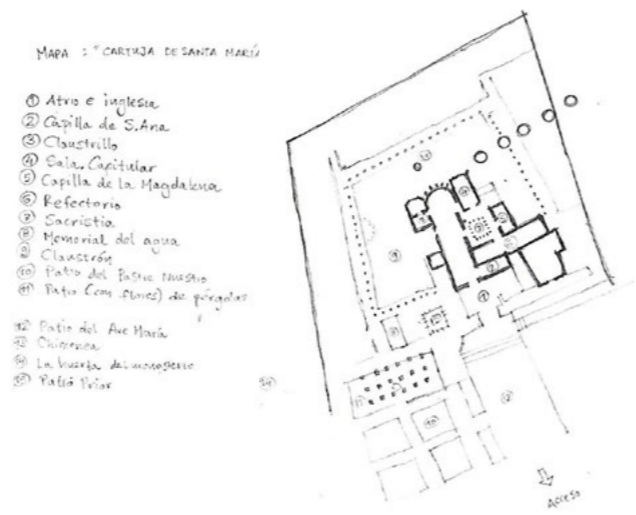 MAPA : "CARTUJA DE SANTA MARÍA
① Atrio e inglesia
② Capilla de S.Ana
③ Claustrillo
④ Sala Capitular
⑤ Capilla de la Magdalena
⑥ Refectorio
⑦ Sacristia
⑧ Memorial del agua
⑨ Claustrón
⑩ Patio del Padre Nuestro
⑪ Patio (con flores) de pérgolas
⑫ Patio del Ave María
⑬ Chimenea
⑭ La huerta del monasterio
⑮ Patio Prior
Acceso